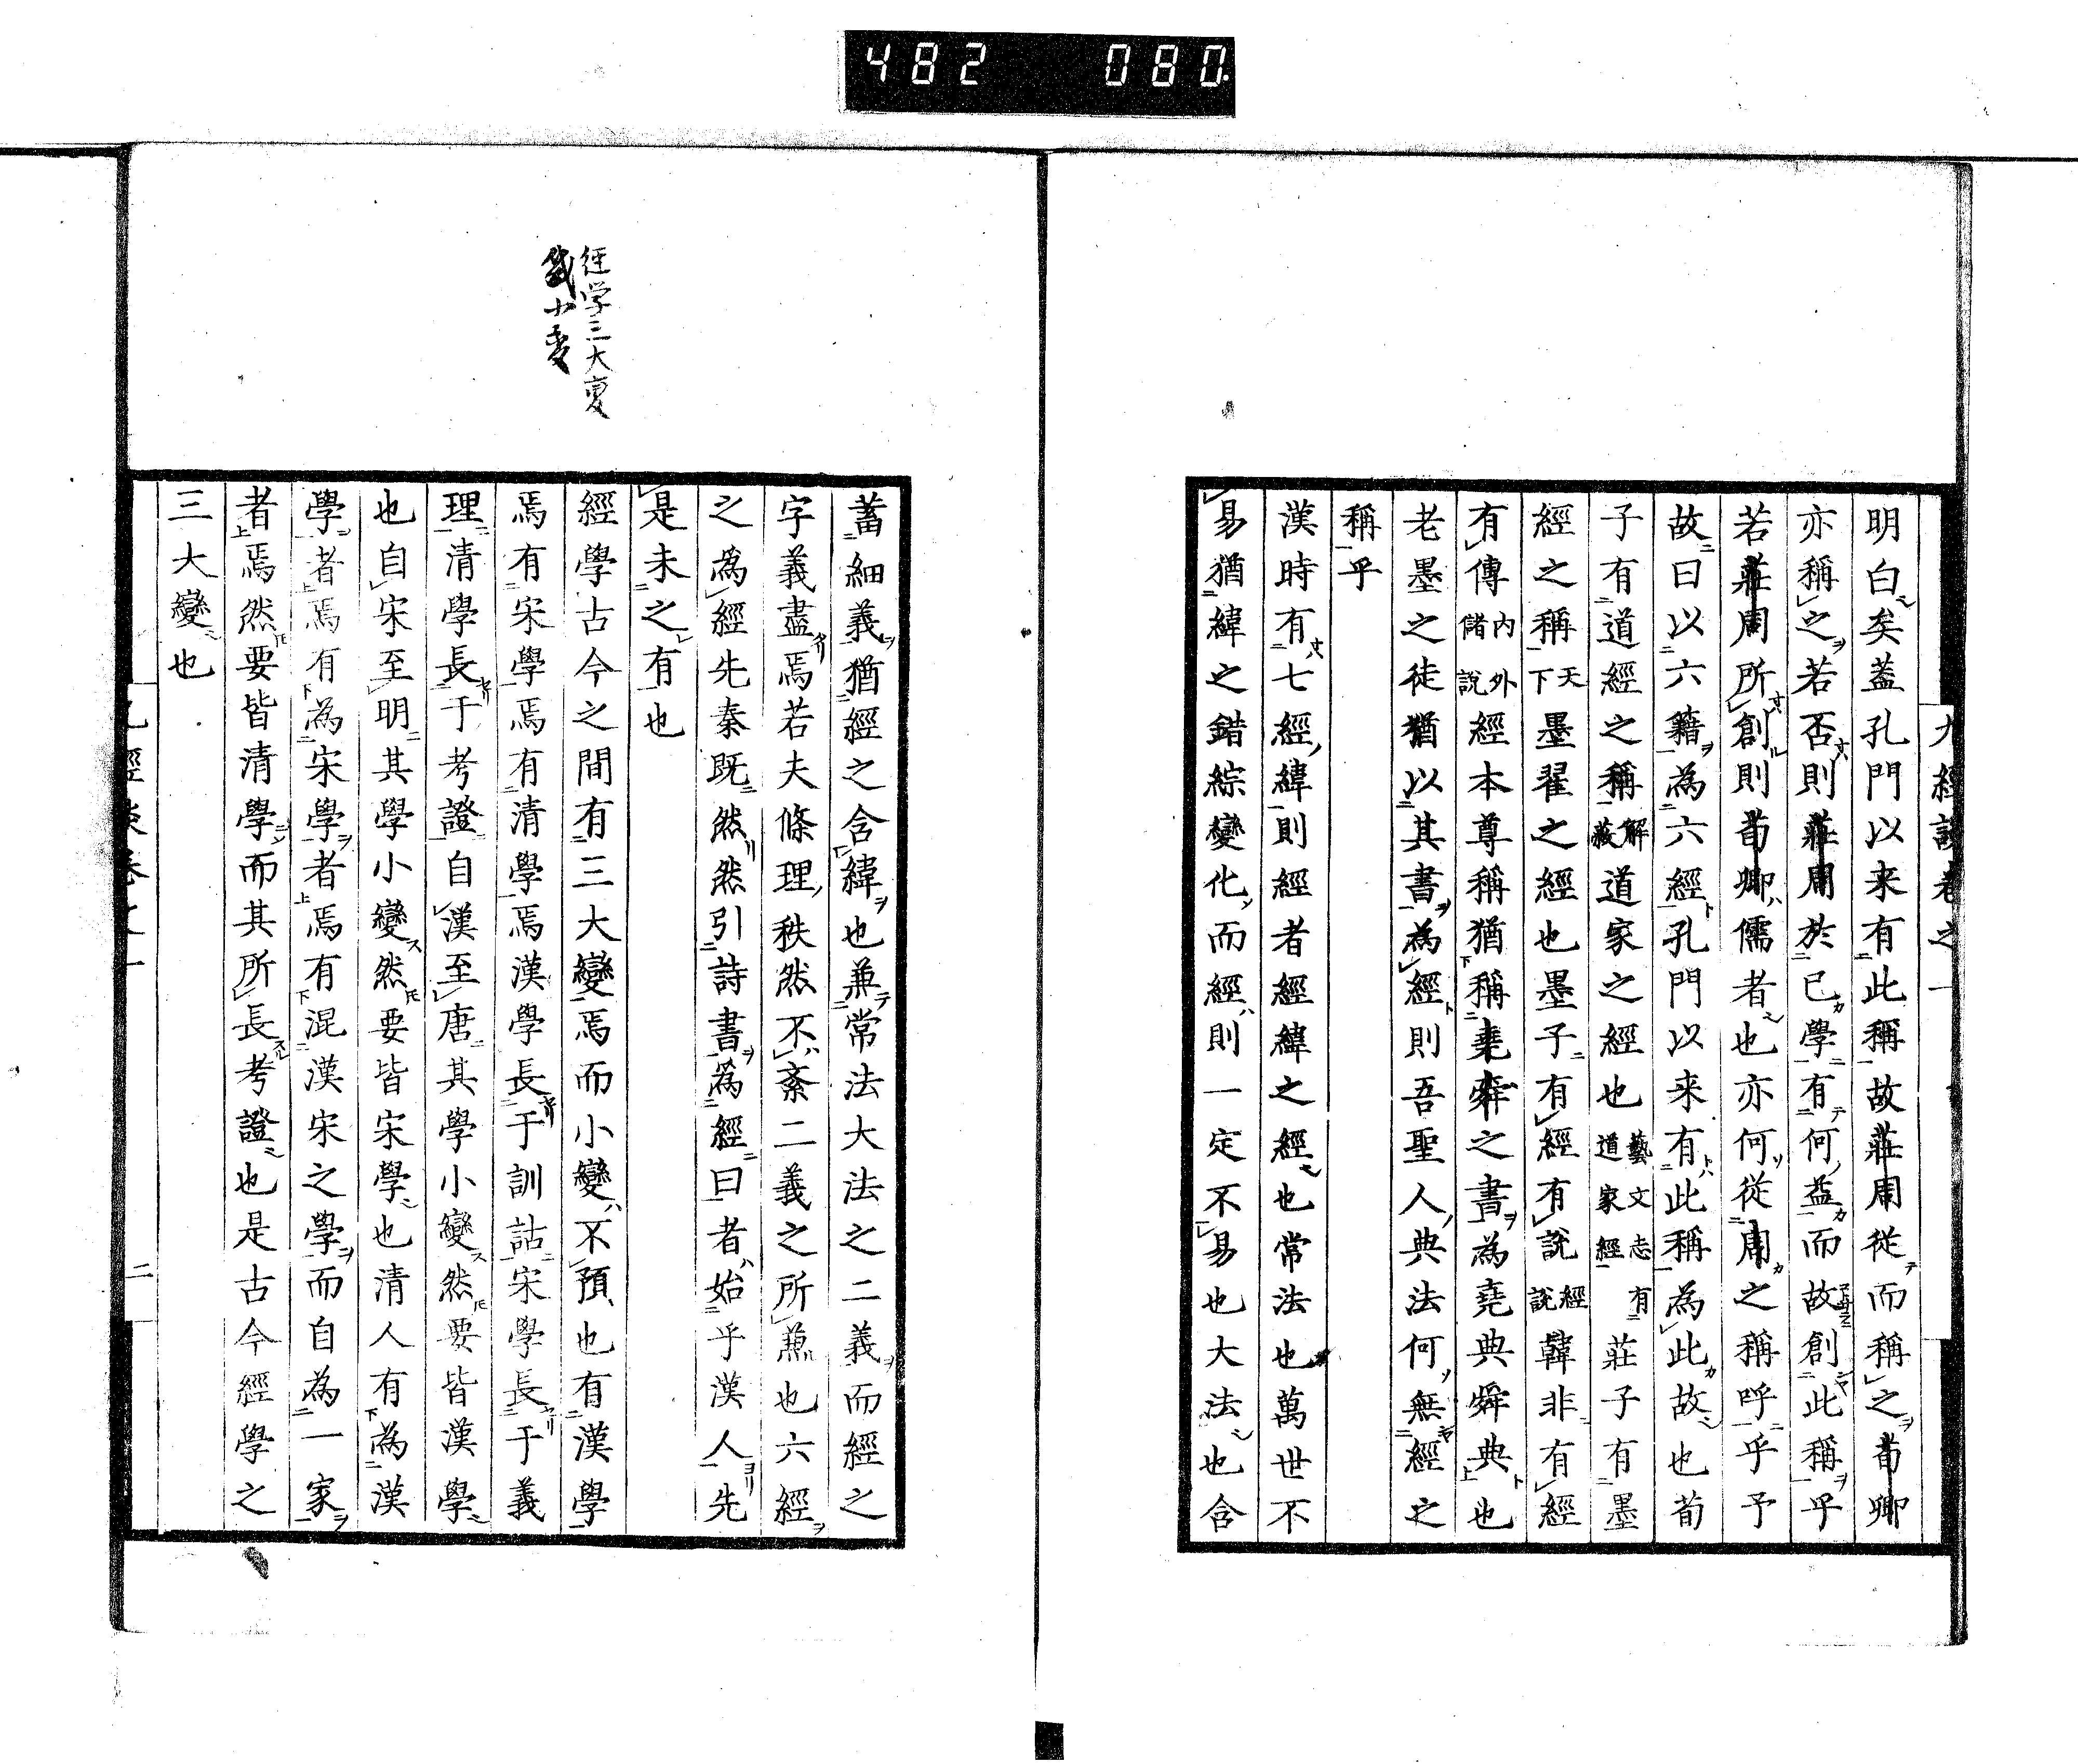 482 080
九經談卷之一
明白矣蓋孔門以来有此稱故莊周從而稱之荀卿
亦稱之若否則莊周於己學有何益而故創此稱乎
若莊周所創則荀卿儒者也亦何從周之稱呼乎予
故曰以六籍為六經孔門以来有此稱為此故也荀
子有道經之稱解蔽道家之經也藝文志有道家經莊子有墨
經之稱天下墨翟之經也墨子有經有說經說韓非有經
有傳内外儲說經本尊稱猶稱堯舜之書為堯典舜典也
老墨之徒猶以其書為經則吾聖人典法何無經之
稱乎
漢時有七經緯則經者經緯之經也常法也萬世不
易猶緯之錯綜變化而經則一定不易也大法也含
蓄細義猶經之含緯也兼常法大法之二義而經之
字義盡焉若夫條理秩然不紊二義之所兼也六經
之為經先秦既然然引詩書為經曰者始乎漢人先
是未之有也
經學古今之間有三大變焉而小變不預也有漢學
焉有宋學焉有清學焉漢學長于訓詁宋學長于義
理清學長于考證自漢至唐其學小變然要皆漢學
也自宋至明其學小變然要皆宋學也清人有為漢
學者焉有為宋學者焉有混漢宋之學而自為一家
者焉然要皆清學而其所長考證也是古今經學之
三大變也
九經談卷之一
二
径学三大变
小変